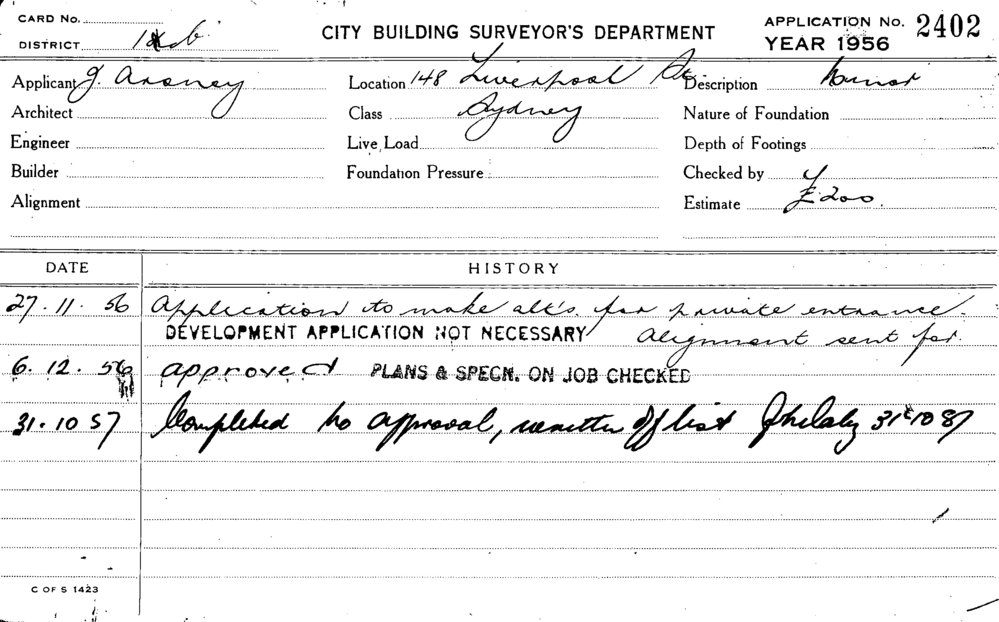 CARD No.
DISTRICT
CITY BUILDING SURVEYOR'S DEPARTMENT
APPLICATION No. 2402
YEAR 1956
Applicant J. Arsney
Location 148 Liverpool St.
Description Minor
Architect
Class Sydney
Nature of Foundation
Engineer
Live Load
Depth of Footings
Builder
Foundation Pressure
Checked by
Alignment
Estimate £200.
DATE HISTORY
27.11.56 Application to make alt's. for private entrance.
DEVELOPMENT APPLICATION NOT NECESSARY Alignment sent for.
6.12.56 approved PLANS & SPECN. ON JOB CHECKED
31.10 57 Completed to approval, written off list 31.10 57
C OF S 1423